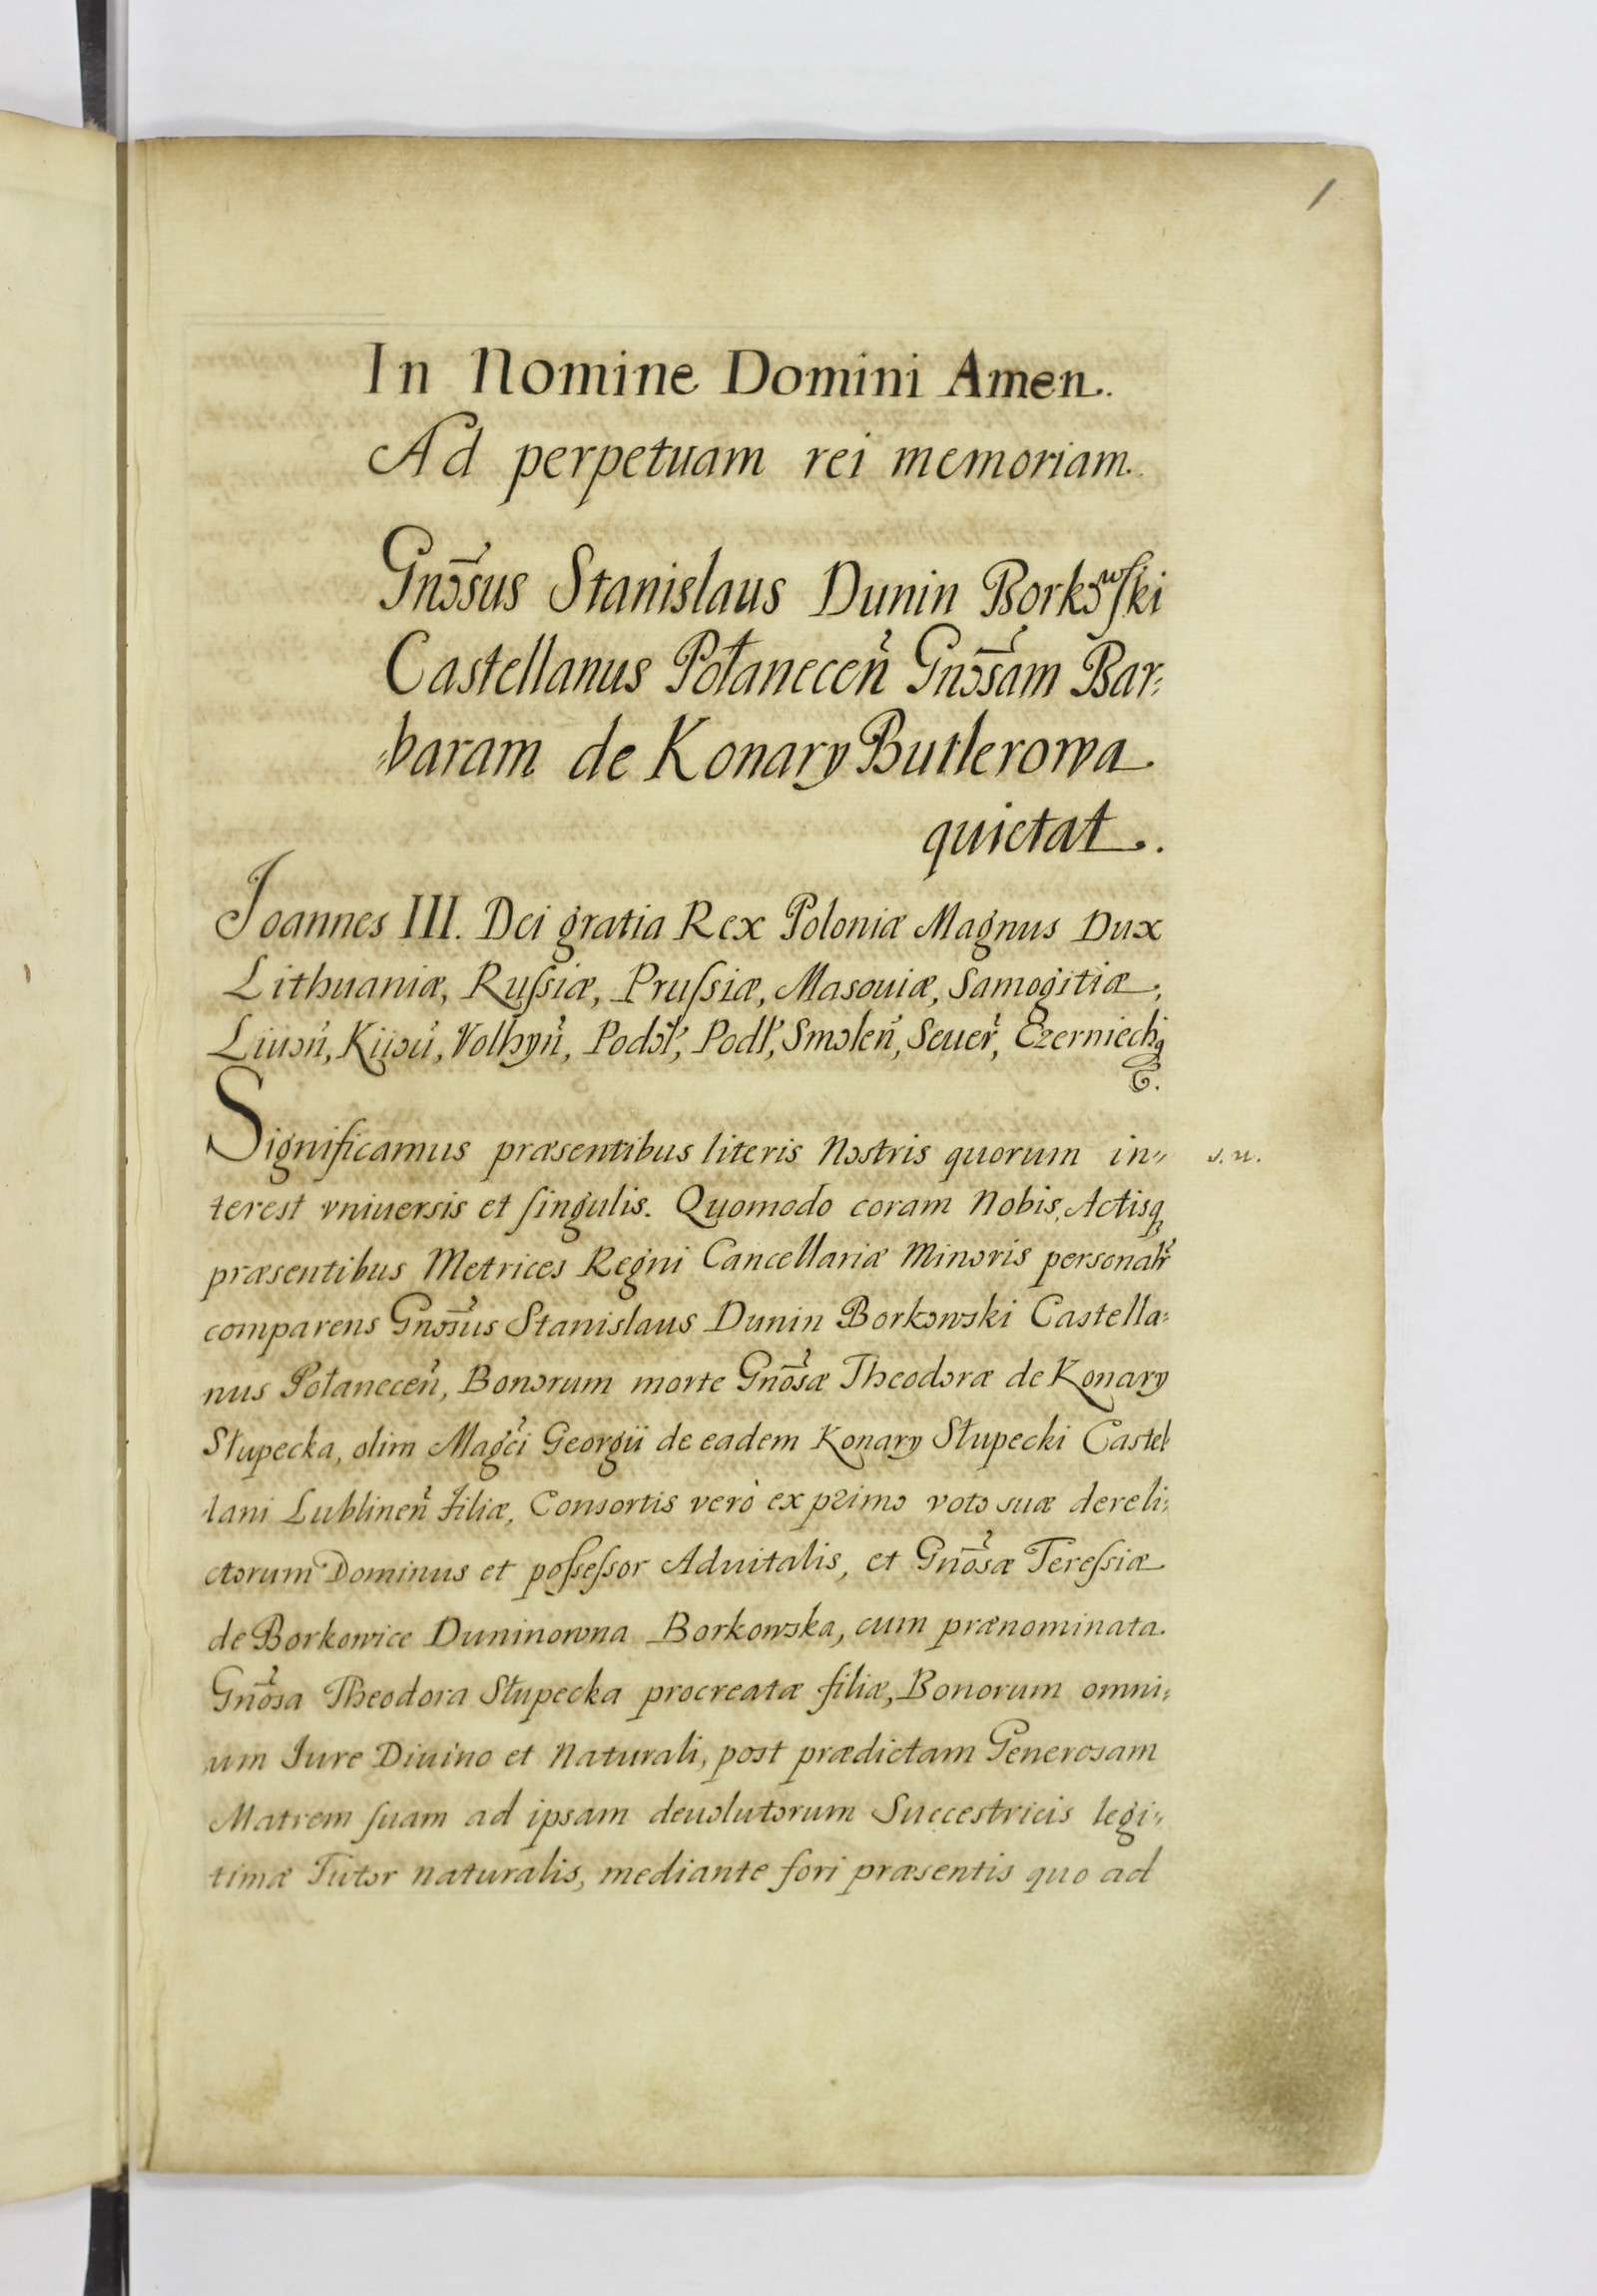 1
In Nomine Domini Amen.
Ad perpetuam rei memoriam.
Gnosus Stanislaus Dunin Borkowski
Castellanus Połanecen̄ Gnosam Bar:
:baram de Konary Butlerowa
quietat.
Joannes III. Dei gratia Rex Poloniæ Magnus Dux
Lithuaniæ, Rußiæ, Prußiæ, Masouiæ, Samogitiæ,
Liuon̄, Kijou̅, Volhyn̄, Podol̄, Podl̄, Smolen̄, Seuer̄, Czerniechq
&.
Significamus præsentibus literis Nostris quorum in: s. n.
terest vniuersis et singulis. Quomodo coram Nobis, Actisq
præsentibus Metrices Regni Cancellariæ Minoris personalr̄
comparens Gnosus Stanislaus Dunin Borkowski Castella:
nus Połanecen̄, Bonorum morte Gnosæ Theodoræ de Konary
Słupecka, olim Magci Georgii de eadem Konary Słupecki Castel
lani Lublinen̄ Filiæ, Consortis verò ex primo voto suæ dereli:
ctorum Dominus et poßeßor Aduitalis, et Gnosæ Tereßiæ
de Borkowice Duninowna Borkowska, cum prænominata
Gnosa Theodora Słupecka procreatæ filiæ, Bonorum omni:
um Jure Diuino et Naturali, post prædictam Generosam
Matrem suam ad ipsam deuolutorum Succestricis legi:
timæ Tutor naturalis, mediante fori præsentis quo ad